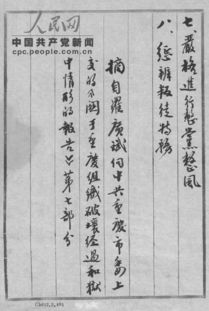 人民网
中国共产党新闻
cpc.people.com.cn
七、严格进行整党整风
八、惩办叛徒特务
摘自罗广斌向中共重庆市委上
交的关于重庆组织破坏经过和狱
中情形的报告之第七部分